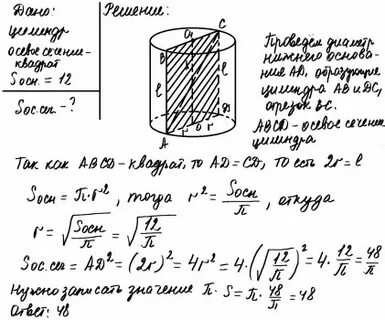 Дано:
цилиндр
осевое сечение-
квадрат
Sосн. = 12
Sос.сеч. - ?
Решение:
O₁
C
B
l
l
r
O
r
D
A
Проведём диаметр
нижнего основа-
ния AD, образующие
цилиндра AB и DC,
отрезок BC.
ABCD - осевое сечение
цилиндра
Так как ABCD - квадрат, то AD = CD, то есть 2r = l
Sосн = π · r², тогда r² = Sосн/π, откуда
r = √(Sосн/π) = √(12/π)
Sос.сеч = AD² = (2r)² = 4r² = 4 · (√(12/π))² = 4 · 12/π = 48/π
Нужно записать значение π · S = π · 48/π = 48
Ответ: 48